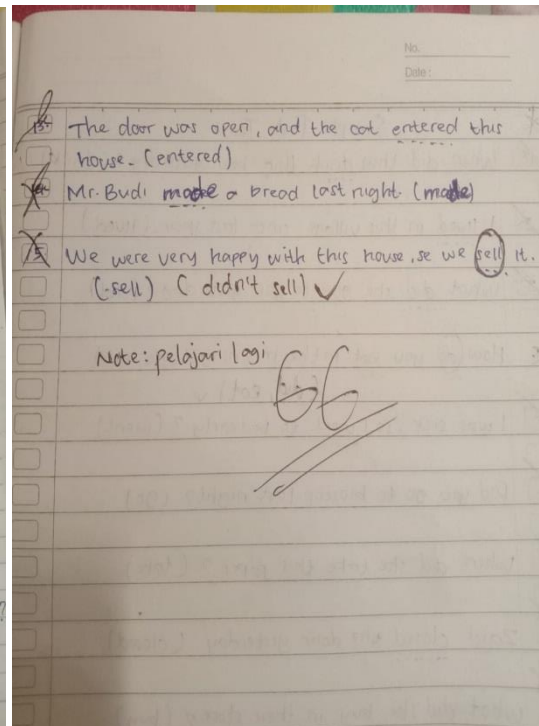 No.
Date:
13.
The door was open, and the cat entered this
house. (entered)
Mr. Budi made a bread last night. (made)
15
We were very happy with this house, se we sell it.
(-sell) (didn't sell) ✓
Note: pelajari lagi
66
?